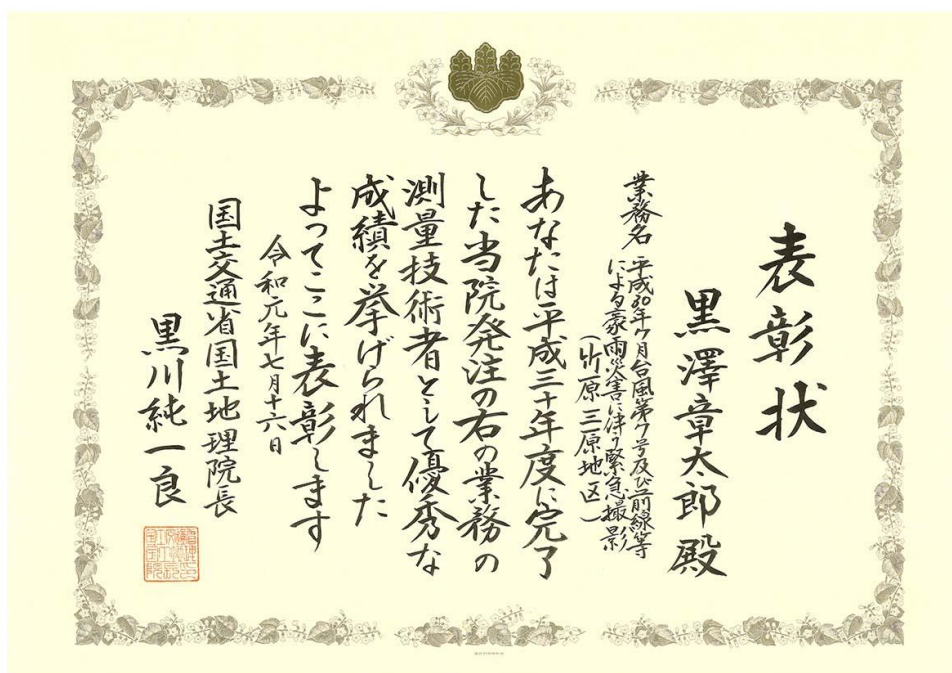 表彰状
黒澤章太郎 殿
業務名 平成30年7月台風第7号及び前線等
による豪雨災害に伴う緊急撮影
(竹原三原地区)
あなたは平成三十年度に完了
した当院発注の右の業務の
測量技術者として優秀な
成績を挙げられました
よってここに表彰します
令和元年七月十六日
国土交通省国土地理院長
黒川純一良